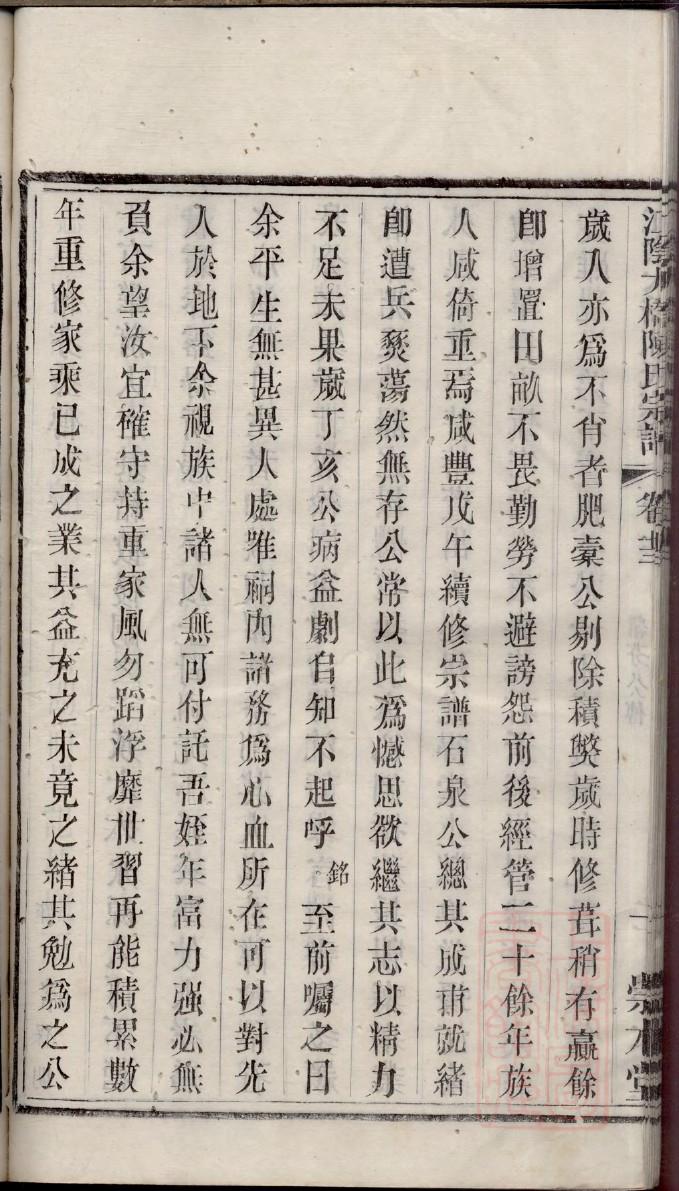 江陰 橋陳氏宗譜 卷 崇本堂
歲入亦爲不肖者肥橐公剔除積獘歲時修葺稍有贏餘
卽增置田畝不畏勤勞不避謗怨前後經管二十餘年族
人咸倚重焉咸豐戊午續修宗譜石泉公總其成甫就緒
卽遭兵燹蕩然無存公常以此爲憾思欲繼其志以精力
不足未果歲丁亥公病益劇自知不起呼銘至前囑之曰
余平生無甚異人處唯祠內諸務爲心血所在可以對先
人於地下余視族中諸人無可付託吾姪年富力强必無
負余望汝宜確守持重家風勿蹈浮靡世習再能積累數
年重修家乘已成之業其益充之未竟之緒其勉爲之公